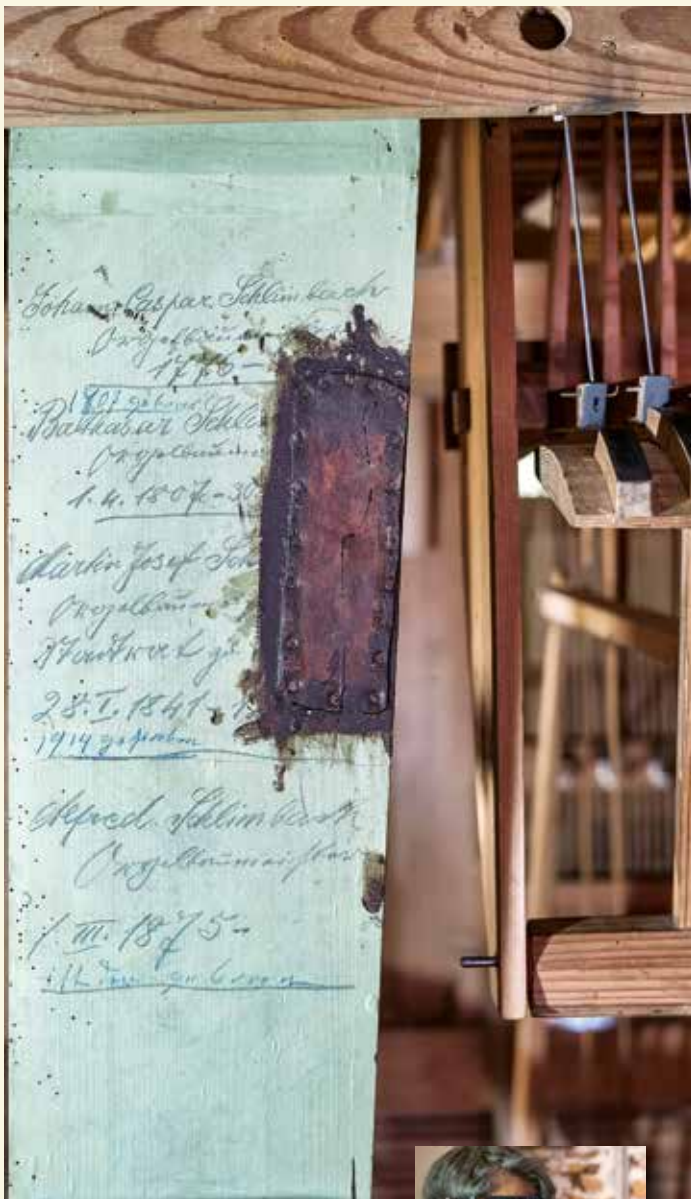 Johann Caspar Schlimbach
Orgelbaum
1770 –
1807 gebor
Balthasar Schli
Orgelbaum
1.4.1807 – 30
Martin Josef Sch
Orgelbaum
Stadtrat
28.I.1841 – 1
1914 gestorben
Alfred Schlimbach
Orgelbaumeister
1.III.1875 –